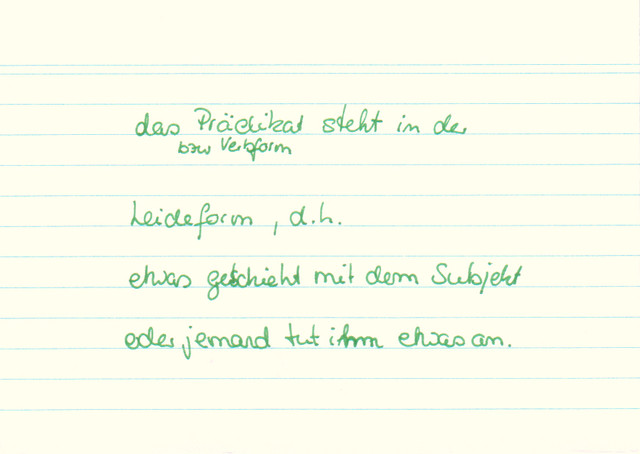 das Prädikat steht in der
bzw Verbform
Leideform, d.h.
etwas geschieht mit dem Subjekt
oder jemand tut ihm etwas an.